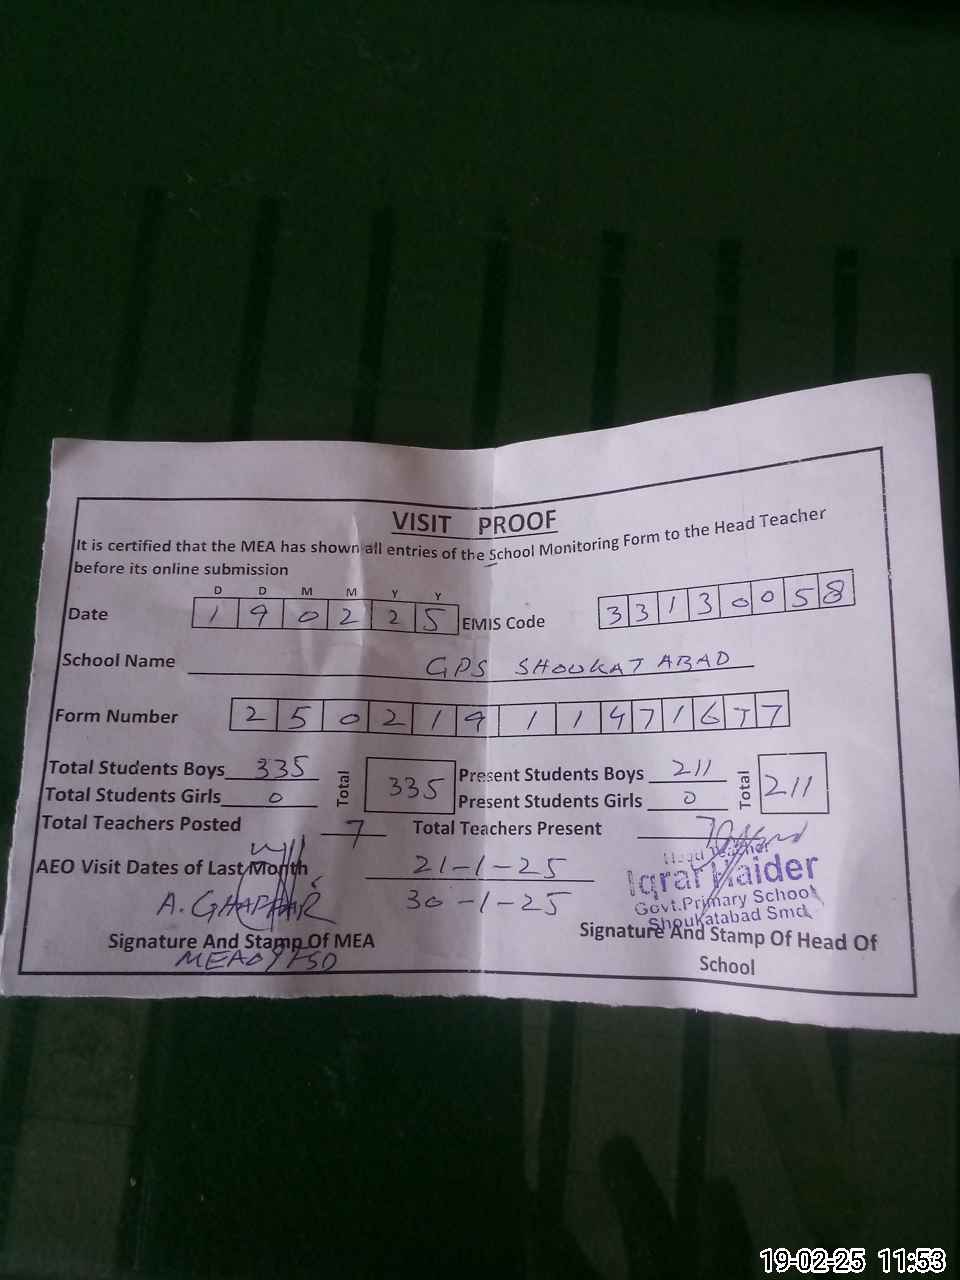 VISIT PROOF
It is certified that the MEA has shown all entries of the School Monitoring Form to the Head Teacher
before its online submission
D D M M Y Y
Date 1 9 0 2 2 5 EMIS Code 3 3 1 3 0 0 5 8
School Name GPS SHOUKATABAD
Form Number 2 5 0 2 1 9 1 1 4 7 1 6 7 7
Total Students Boys 335 Total 335 Present Students Boys 211 Total 211
Total Students Girls 0 Present Students Girls 0
Total Teachers Posted 7 Total Teachers Present 7
AEO Visit Dates of Last Month 21-1-25
30-1-25
Head Teacher
Iqrar Haider
Govt.Primary School
Shoukatabad Smd
A. GHAFFAR
Signature And Stamp Of MEA
Signature And Stamp Of Head Of
School
19-02-25 11:53